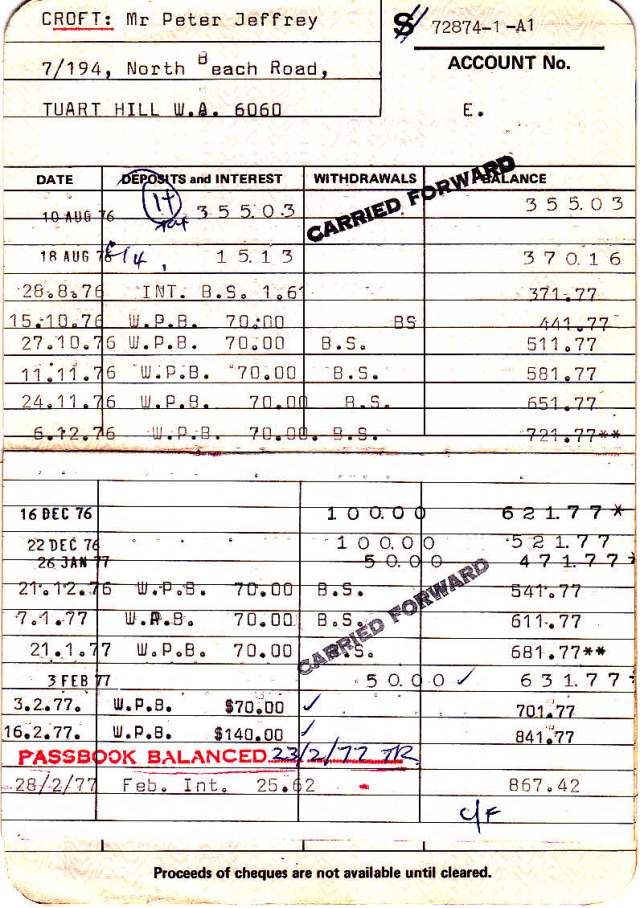 CROFT: Mr Peter Jeffrey
S/ 72874-1 -A1
7/194, North Beach Road,
ACCOUNT No.
TUART HILL W.A. 6060
E.
DATE DEPOSITS and INTEREST WITHDRAWALS BALANCE
CARRIED FORWARD
10 AUG 76 355.03 355.03
18 AUG 76 15.13 370.16
28.8.76 INT. B.S. 1.61 371.77
15.10.76 W.P.B. 70.00 BS 441.77
27.10.76 W.P.B. 70.00 B.S. 511.77
11.11.76 W.P.B. 70.00 B.S. 581.77
24.11.76 W.P.B. 70.00 B.S. 651.77
6.12.76 W.P.B. 70.00. B.S. 721.77**
16 DEC 76 100.00 621.77*
22 DEC 76 100.00 521.77
26 JAN 77 50.00 471.77*
21.12.76 W.P.B. 70.00 B.S. 541.77
7.1.77 W.P.B. 70.00 B.S. 611.77
CARRIED FORWARD
21.1.77 W.P.B. 70.00 B.S. 681.77**
3 FEB 77 50.00 ✓ 631.77*
3.2.77. W.P.B. $70.00 ✓ 701.77
16.2.77. W.P.B. $140.00 ✓ 841.77
PASSBOOK BALANCED 23/2/77 TR
28/2/77 Feb. Int. 25.62 867.42
C/F
Proceeds of cheques are not available until cleared.